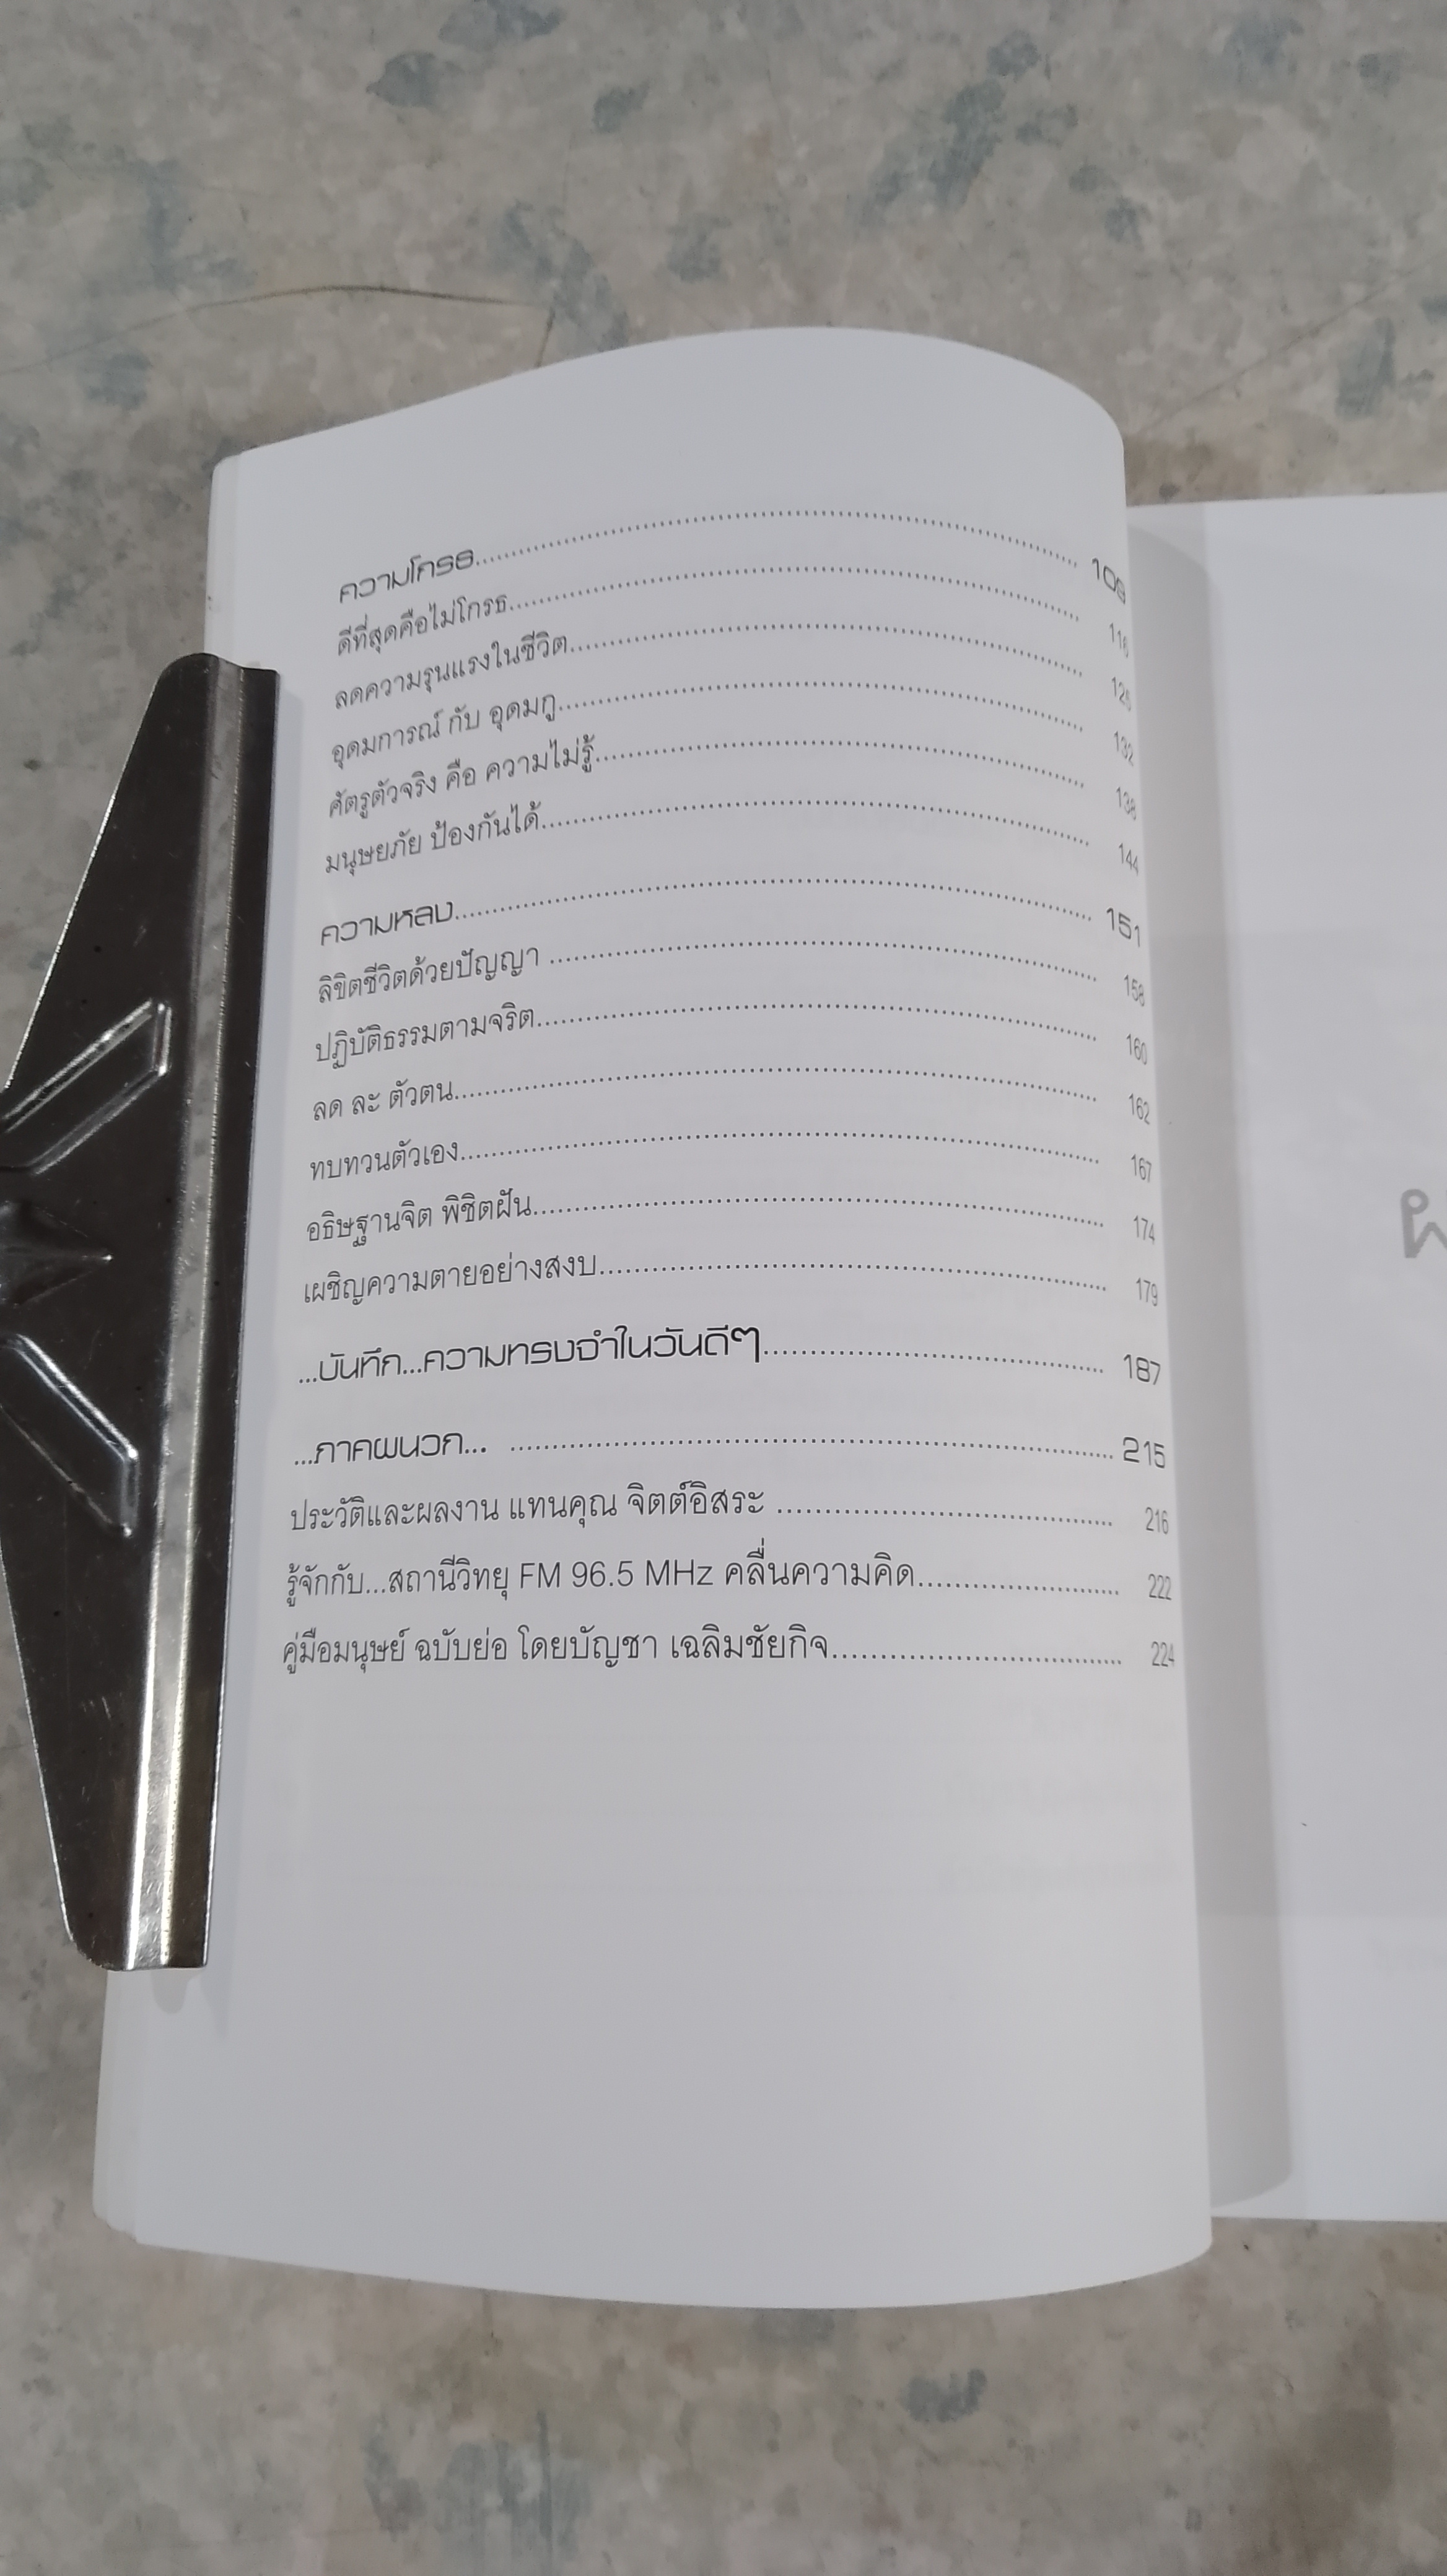 ความโกรธ.......... 109
ดีที่สุดคือไม่โกรธ.......... 116
ลดความรุนแรงในชีวิต.......... 125
อุดมการณ์ กับ อุดมกู.......... 132
ศัตรูตัวจริง คือ ความไม่รู้.......... 138
มนุษยภัย ป้องกันได้.......... 144
ความหลง.......... 151
ลิขิตชีวิตด้วยปัญญา .......... 158
ปฏิบัติธรรมตามจริต.......... 160
ลด ละ ตัวตน.......... 162
ทบทวนตัวเอง.......... 167
อธิษฐานจิต พิชิตฝัน.......... 174
เผชิญความตายอย่างสงบ.......... 179
...บันทึก...ความทรงจำในวันดีๆ.......... 187
...ภาคผนวก... .......... 215
ประวัติและผลงาน แทนคุณ จิตต์อิสระ .......... 216
รู้จักกับ...สถานีวิทยุ FM 96.5 MHz คลื่นความคิด.......... 222
คู่มือมนุษย์ ฉบับย่อ โดยบัญชา เฉลิมชัยกิจ.......... 224